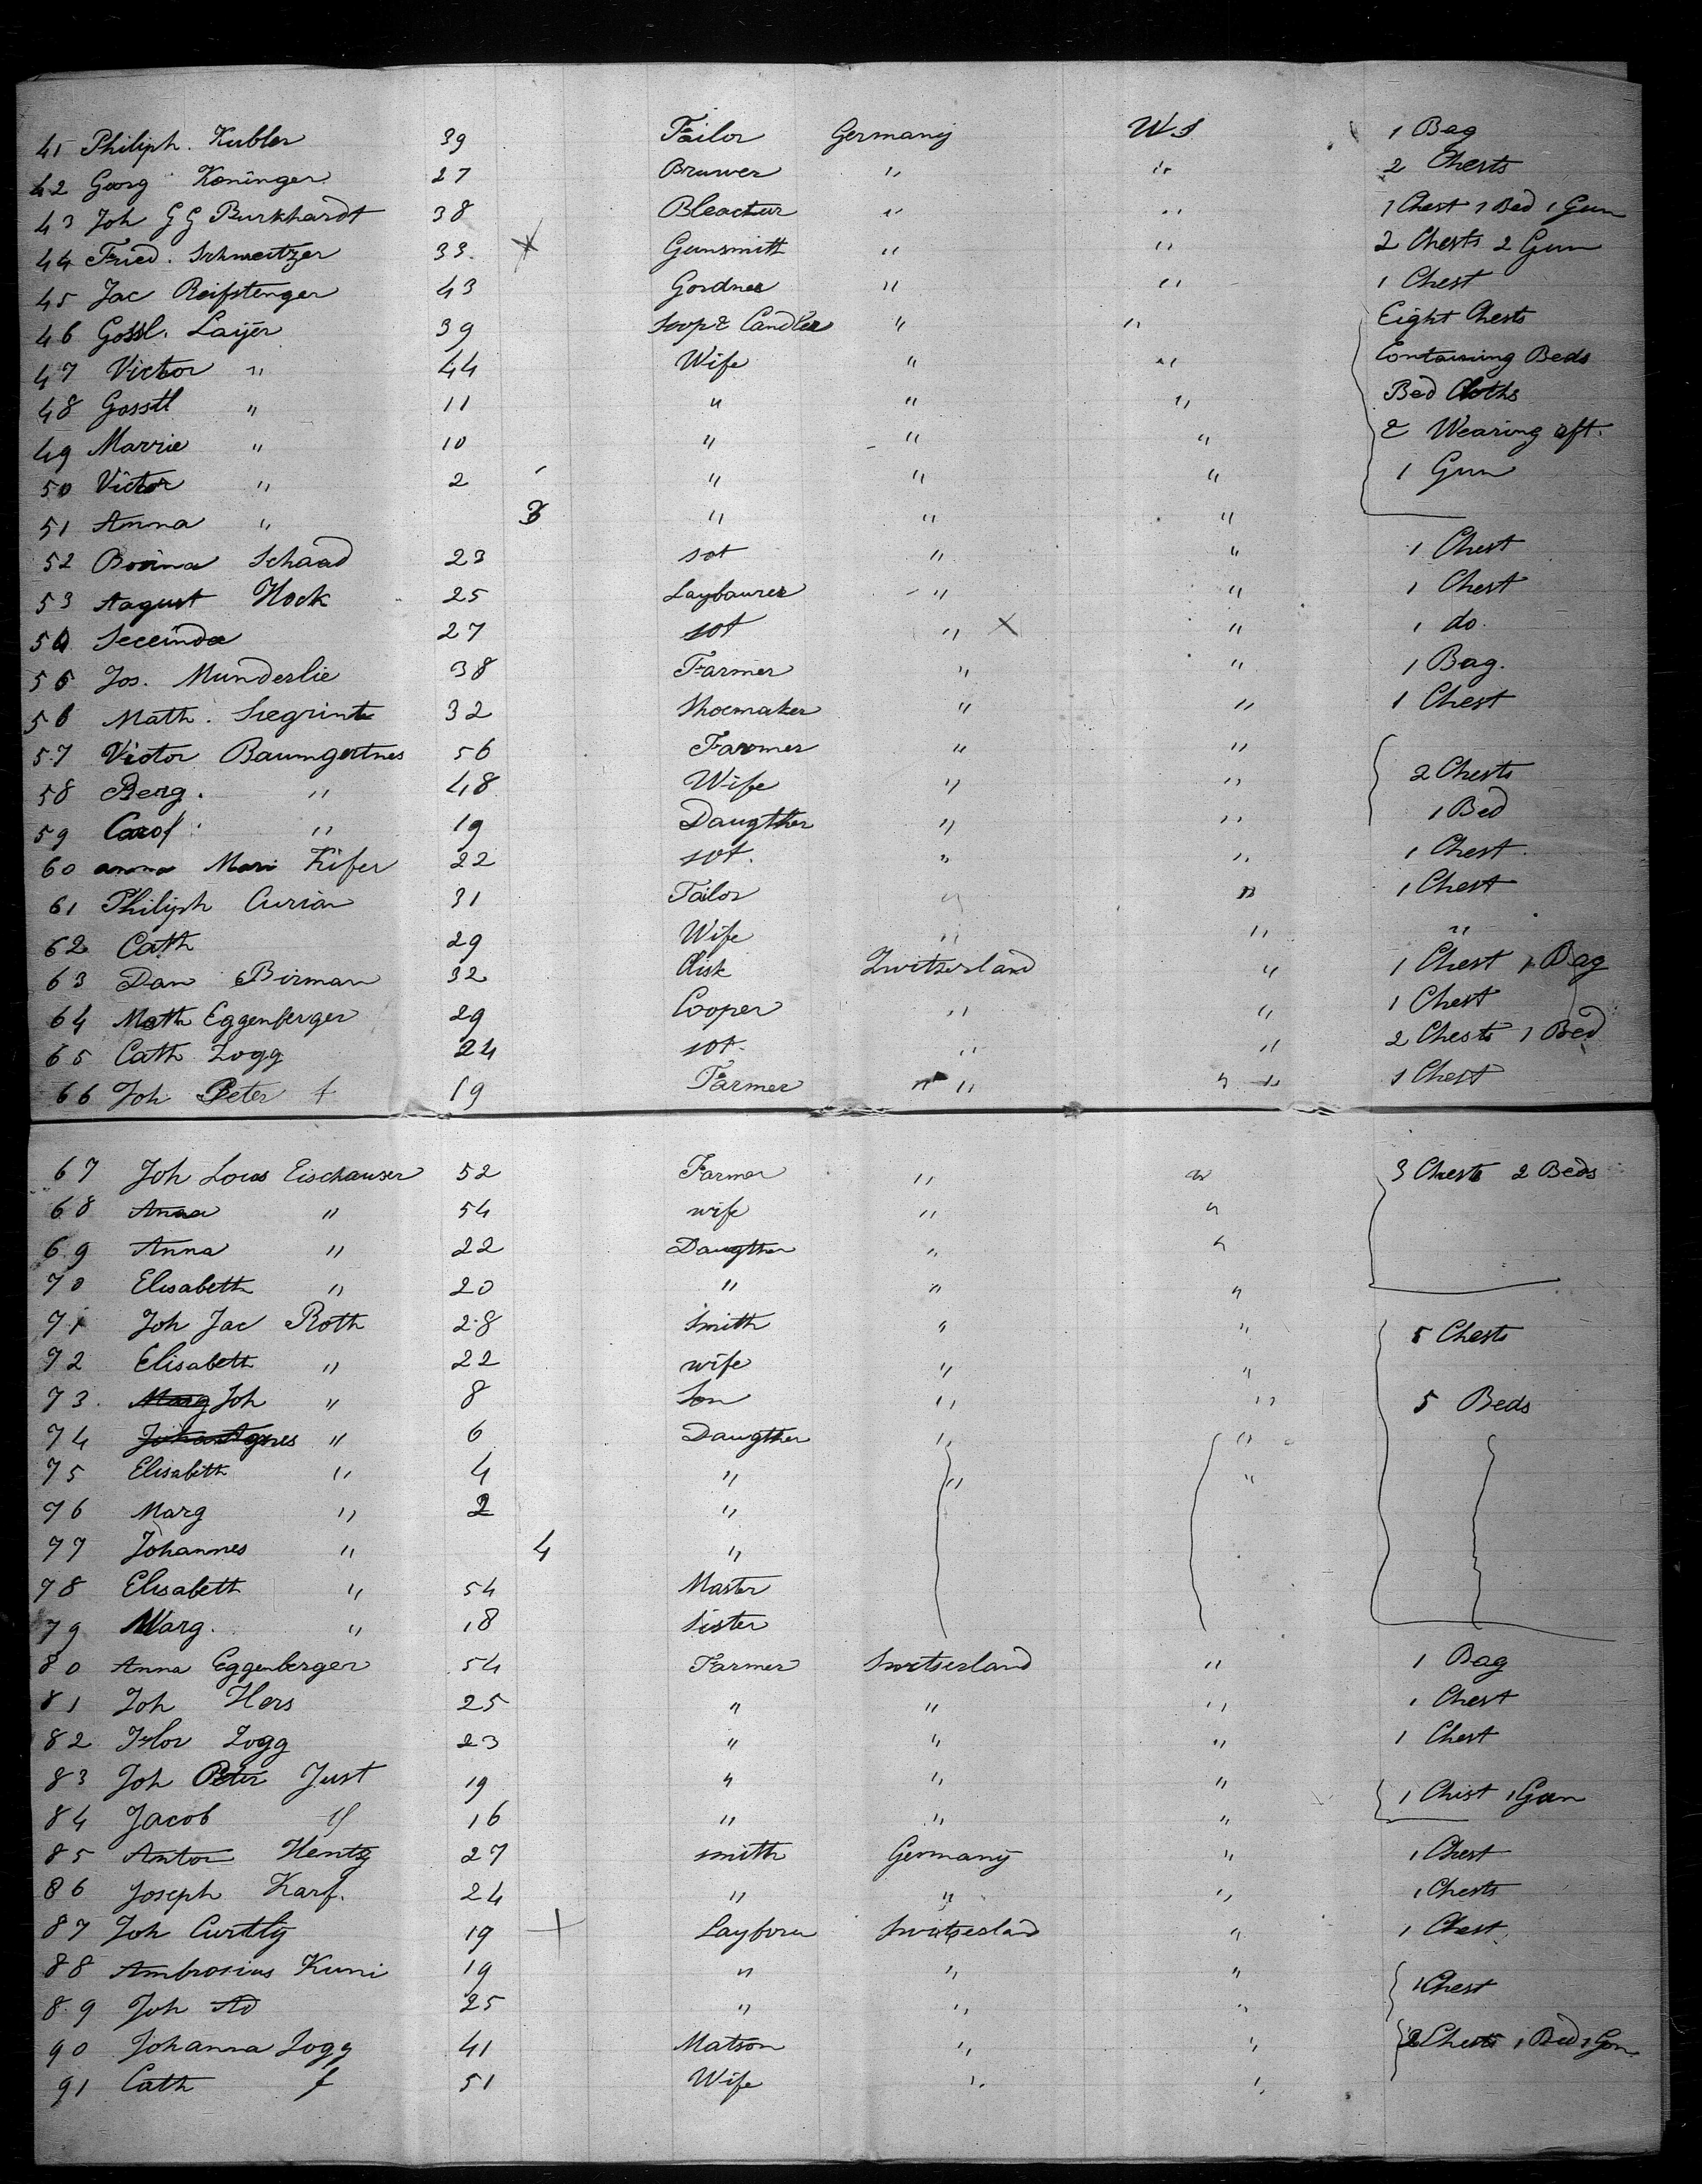 41 Philiph. Kubler 39 Tailor Germany U.S 1 Bag
42 Georg Koninger 27 Bruwer " " 2 Chests
43 Joh G G Burkhardt 38 Bleactur " " 1 Chest 1 Bed 1 Gun
44 Fried. Schweitzer 33. Gunsmitt " " 2 Chests 2 Gun
45 Jac Reifstenger 43 Gordner " " 1 Chest
46 Gossl. Laijer 39 Soop & Candler " " Eight Chests
47 Victor " 44 Wife " " Containing Beds
48 Gosstl " 11 " " " Bed Cloths
49 Marrie " 10 " " " & Wearing aft.
50 Victor " 2 " " " 1 Gun
51 Anna " 3 " " "
52 Schaad 23 sot " " 1 Chest
53 August Hock 25 Laybaurer " " 1 Chest
54 27 sot " X " 1 do.
55 Jos. Munderlie 38 Farmer " " 1 Bag.
56 Math. Siegrint 32 Shoemaker " " 1 Chest
57 Victor Baumgertnes 56 Farmer " "
58 Berg. " 48 Wife " " 2 Chests
59 Carol " 19 Daugther " " 1 Bed
60 anna Mari Kifer 22 sot. " " 1 Chest
61 Philiph Curian 31 Tailor " " 1 Chest
62 Cath 29 Wife " " "
63 Dan Birman 32 Zwitserland " 1 Chest 1 Bag
64 Math Eggenberger 29 Cooper " " 1 Chest
65 Cath Zogg 24 sot. " " 2 Chests 1 Bed
66 Joh Peter f 19 Farmer " " " " 1 Chest
67 Joh Lows Eischauser 52 Farmer " " 3 Chests 2 Beds
68 Anna " 54 wife " "
69 Anna " 22 Daugther " "
70 Elisabeth " 20 " " "
71 Joh Jac Roth 28 Smith " " 5 Chests
72 Elisabeth " 22 wife " "
73. Marg Joh " 8 Son " " 5 Beds
74 Johan Agnes " 6 Daugther " "
75 Elisabeth " 4 " " "
76 Marg " 2 "
77 Johannes " 4 "
78 Elisabeth " 54 Master
79 Marg. " 18 Sister
80 Anna Eggenberger 54 Farmer Switserland " 1 Bag
81 Joh Hers 25 " " " 1 Chest
82 Flor Zogg 23 " " " 1 Chest
83 Joh Peter Just 19 " " " 1 Chist 1 Gun
84 Jacob " 16 " " "
85 Anton Hentz 27 smith Germany " 1 Chest
86 Joseph Karf. 24 " " " 1 Chests
87 Joh Curtly 19 Layborer Switserland " 1 Chest
88 Ambrosius Kuni 19 " " " 1 Chest
89 Joh Ad 25 " " "
90 Johanna Zogg 41 Matson " " 2 Chests 1 Bed 1 Gon
91 Cath f 51 Wife " "